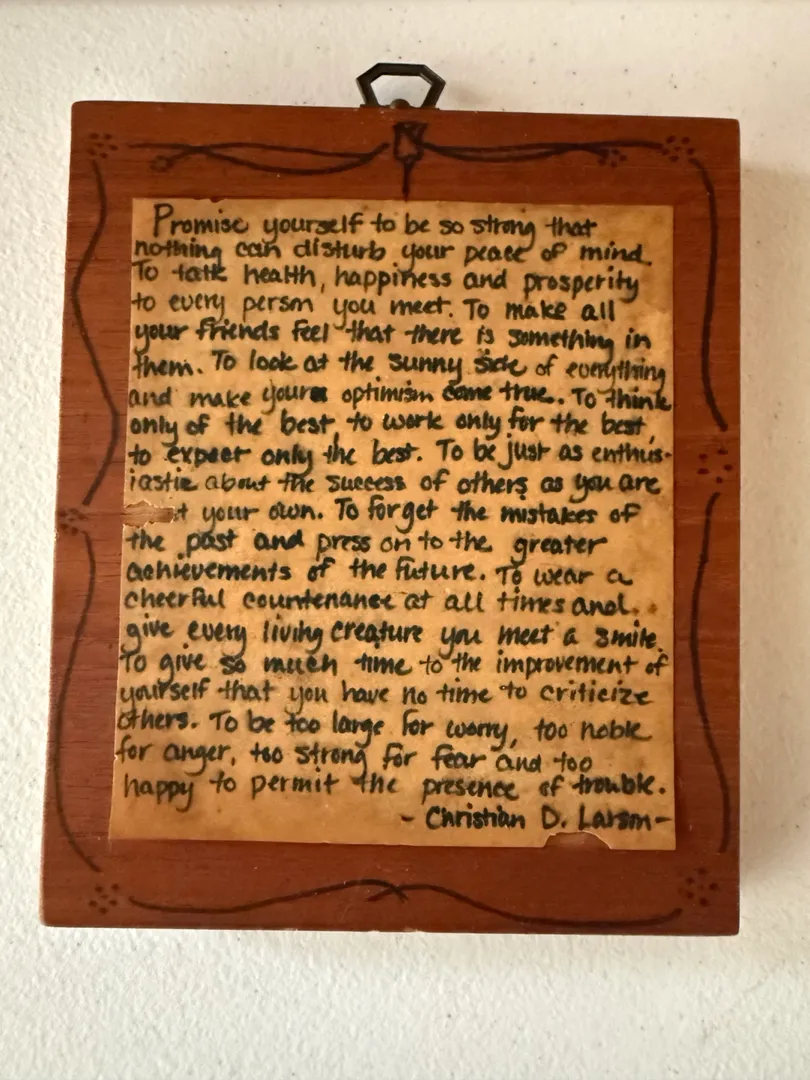 Promise yourself to be so strong that
nothing can disturb your peace of mind.
To talk health, happiness and prosperity
to every person you meet. To make all
your friends feel that there is something in
them. To look at the sunny side of everything
and make your optimism come true. To think
only of the best, to work only for the best,
to expect only the best. To be just as enthus-
iastic about the success of others as you are
t your own. To forget the mistakes of
the past and press on to the greater
achievements of the future. To wear a
cheerful countenance at all times and
give every living creature you meet a smile.
To give so much time to the improvement of
yourself that you have no time to criticize
others. To be too large for worry, too noble
for anger, too strong for fear and too
happy to permit the presence of trouble.
- Christian D. Larson -